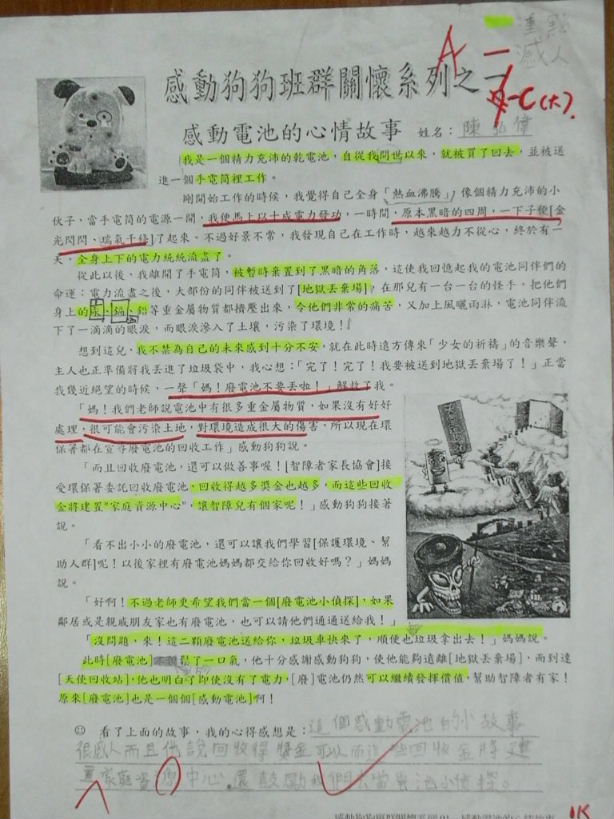 重點
感人
A-
A-C(大)
感動狗狗班群關懷系列之一
感動電池的心情故事 姓名：陳弘偉
我是一個精力充沛的乾電池，自從我問世以來，就被買了回去，並被送
進一個手電筒裡工作。
剛開始工作的時候，我覺得自己全身「熱血沸騰」像個精力充沛的小
伙子，當手電筒的電源一開，我便馬上以十成電力發功，一時間，原本黑暗的四周，一下子便[金
光閃閃、瑞氣千條]了起來。不過好景不常，我發現自己在工作時，越來越力不從心，終於有一
天，全身上下的電力統統流盡了。
從此以後，我離開了手電筒，被暫時棄置到了黑暗的角落，這使我回憶起我的電池同伴們的
命運：電力流盡之後，大部份的同伴被送到了[地獄丟棄場]，在那兒有一台一台的怪手，把他們
身上的汞、鎘、鉛等重金屬物質都擠壓出來，令他們非常的痛苦，又加上風曬雨淋，電池同伴流
下了一滴滴的眼淚，而眼淚滲入了土壤，污染了環境！
想到這兒，我不禁為自己的未來感到十分不安，就在此時遠方傳來「少女的祈禱」的音樂聲，
主人也正準備將我丟進了垃圾袋中，我心想：「完了！完了！我要被送到地獄丟棄場了！」正當
我幾近絕望的時候，一聲「媽！廢電池不要丟啦！」解救了我。
「媽！我們老師說電池中有很多重金屬物質，如果沒有好好
處理，很可能會污染土地，對環境造成很大的傷害，所以現在環
保署都在宣導廢電池的回收工作」感動狗狗說。
「而且回收廢電池，還可以做善事喔！[智障者家長協會]接
受環保署委託回收廢電池，回收得越多獎金也越多，而這些回收
金將建置"家庭資源中心"，讓智障兒有個家呢！」感動狗狗接著
說。
「看不出小小的廢電池，還可以讓我們學習[保護環境、幫
助人群]呢！以後家裡有廢電池媽媽都交給你回收好嗎？」媽媽
說。
「好啊！不過老師更希望我們當一個[廢電池小偵探]，如果
鄰居或是親戚朋友家也有廢電池，也可以請他們通通送給我！」
「沒問題，來！這二顆廢電池送給你，垃圾車快來了，順便也垃圾拿出去！」媽媽說。
此時[廢電池]鬆了一口氣，他十分感謝感動狗狗，使他能夠遠離[地獄丟棄場]，而到達
[天使回收站]，他也明白了即使沒有了電力，[廢]電池仍然可以繼續發揮價值，幫助智障者有家！
原來[廢電池]也是一個個[感動電池]啊！
☺ 看了上面的故事，我的心得感想是：這個感動電池的小故事
很感人而且他說回收得獎金可以而這些回收金將建
置家庭資源中心，還鼓勵我們去當電池小偵探。